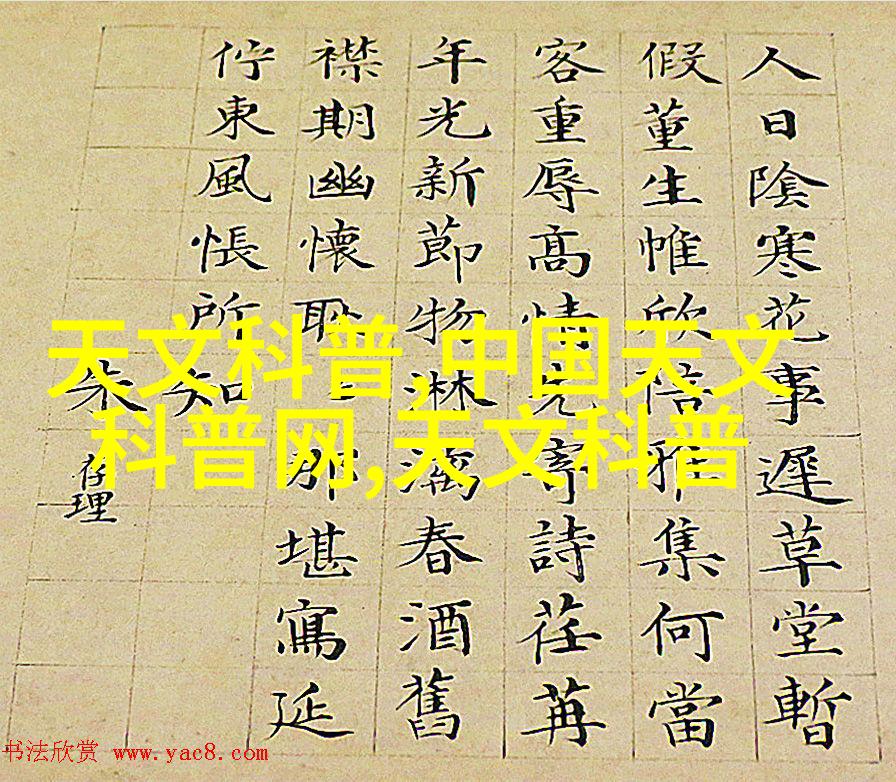 人日陰寒花事遲草堂暫
假董生帷欣陪雅集何當
客重辱高情先寄詩荏苒
年光新節物淋漓春酒舊
襟期幽懷耿那堪寫延
佇東風悵所知
朱存理
天文科普,中国天文
科普网,天文科普
书法欣赏 www.yac8.com